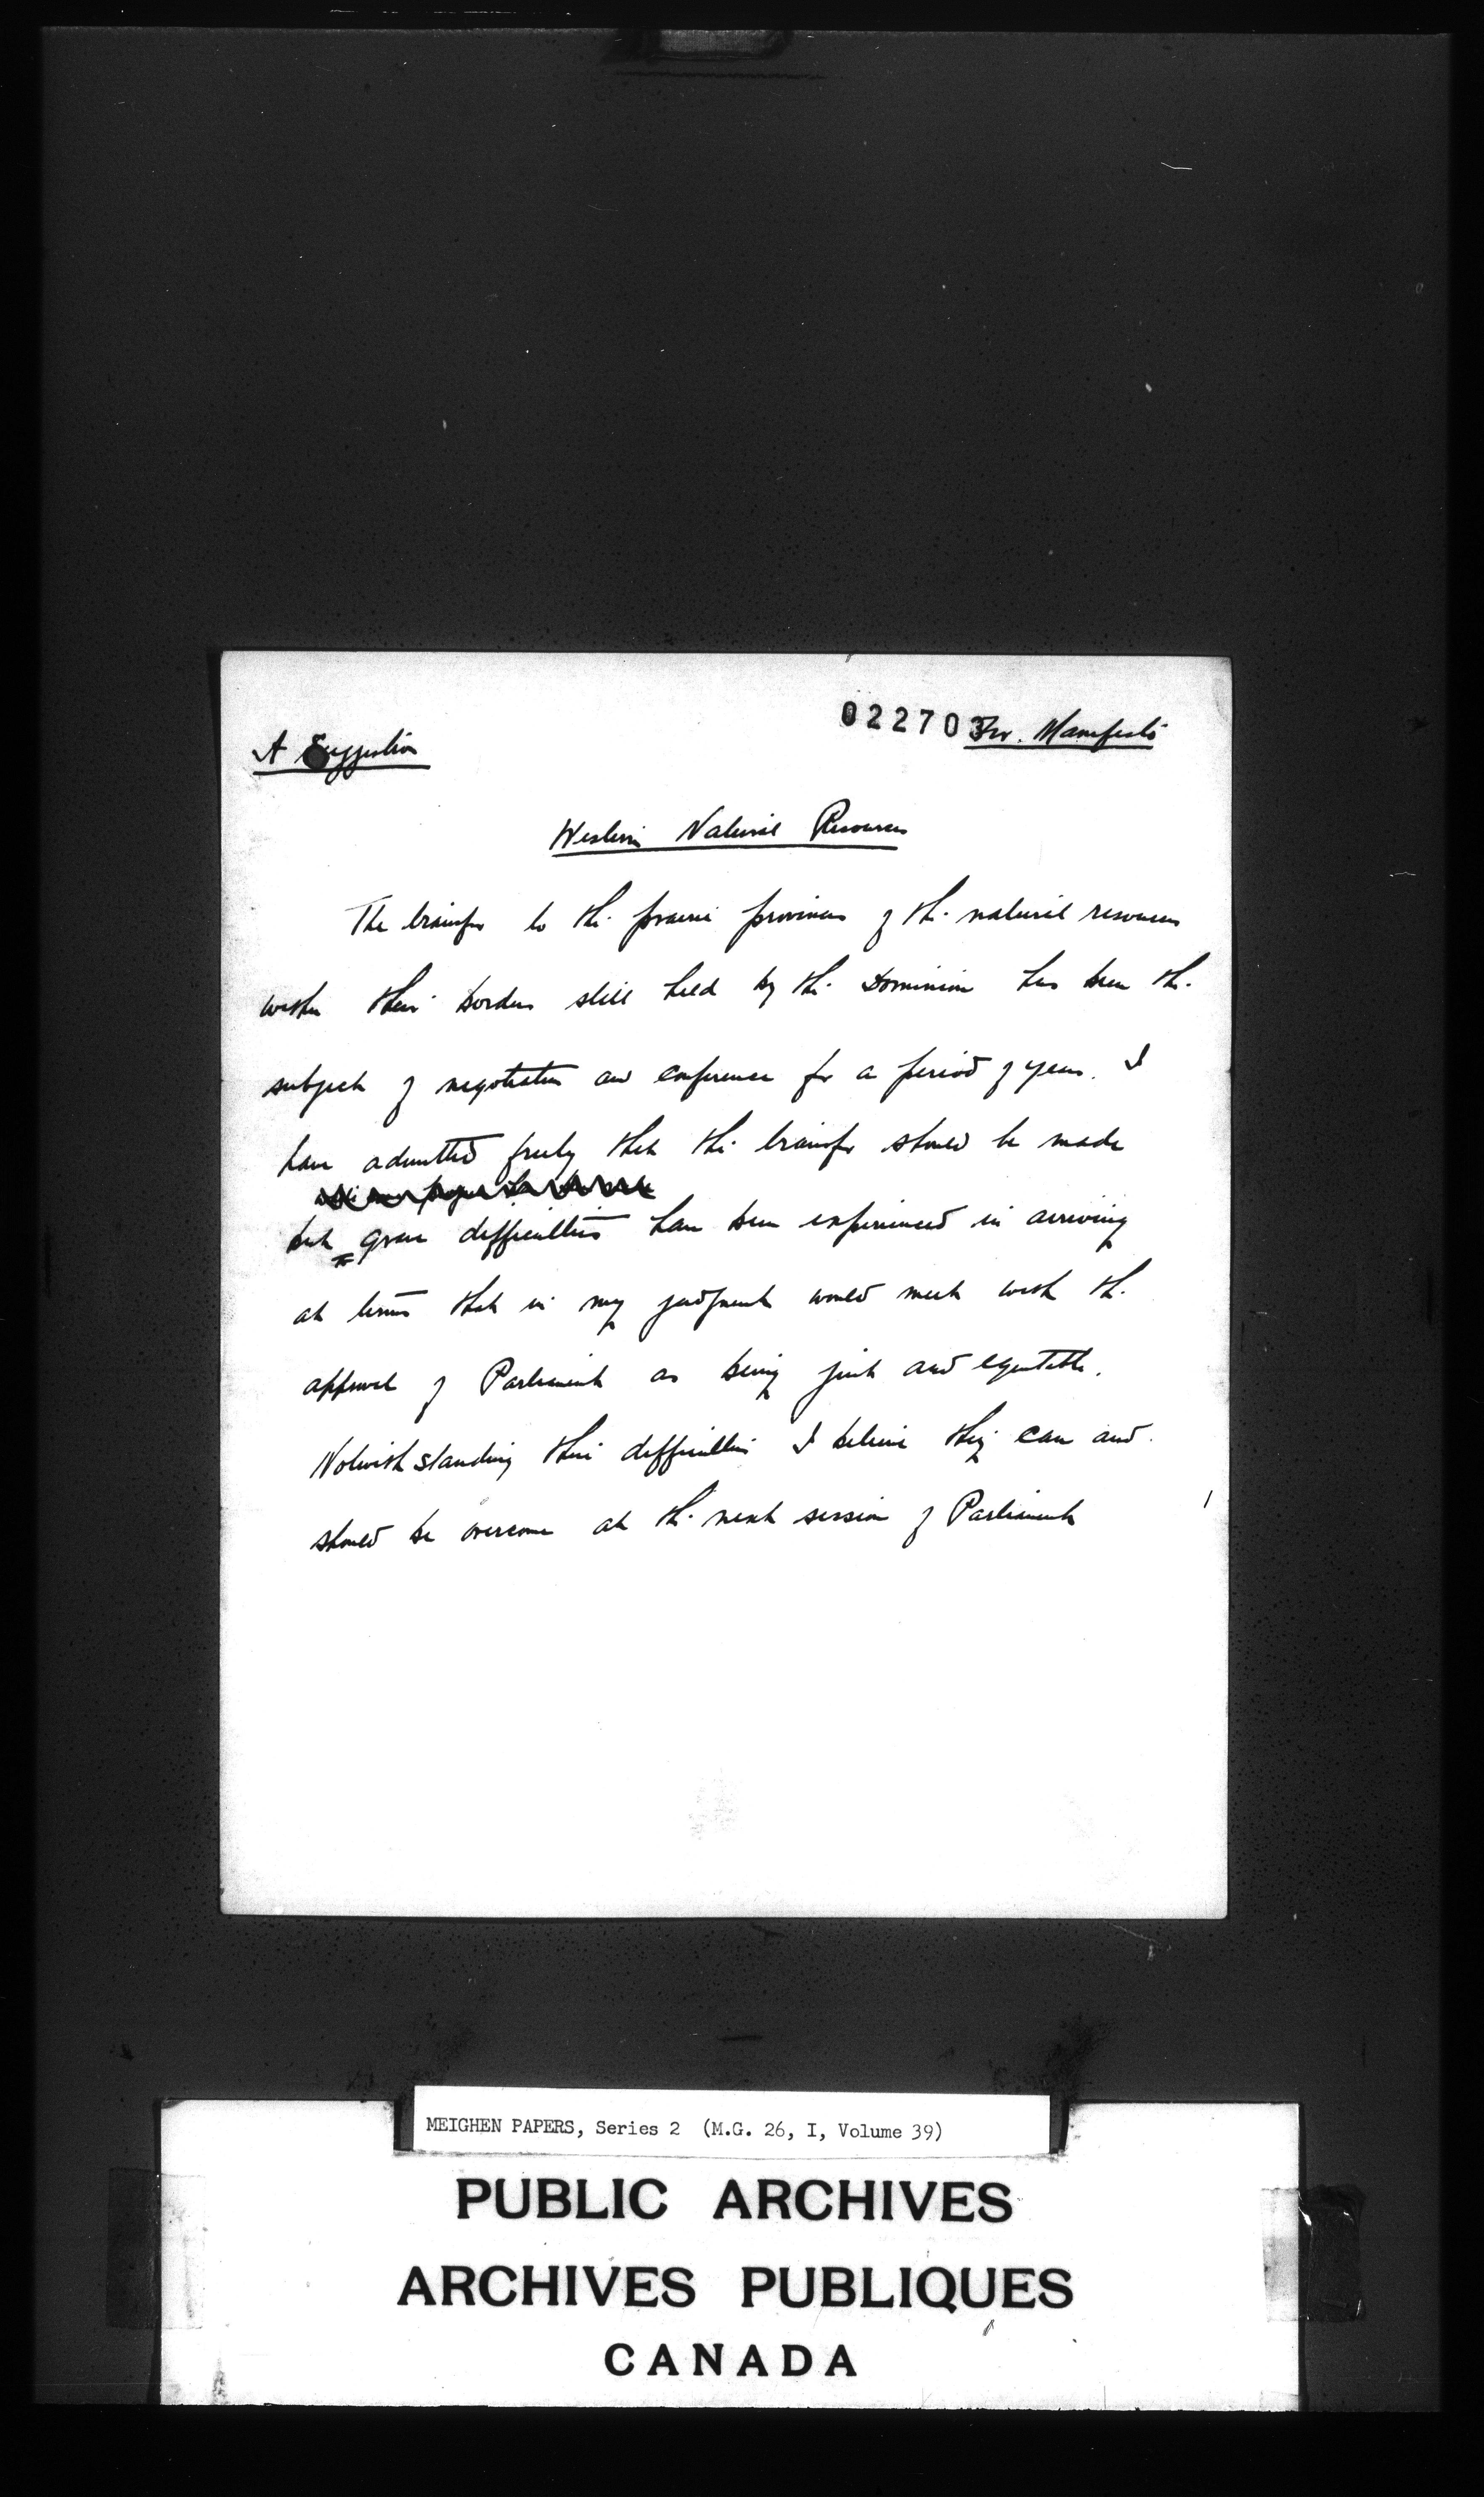 022703
For. Manifesto
A Suggestion
Western Natural Resources
The transfer to the prairie provinces of the natural resources
within their borders still held by the Dominion has been the
subject of negotiation and conference for a period of years. I
have admitted freely that the transfer should be made
but grave difficulties have been experienced in arriving
at terms that in my judgment would meet with the
approval of Parliament as being just and equitable.
Notwithstanding these difficulties I believe they can and
should be overcome at the next session of Parliament
MEIGHEN PAPERS, Series 2 (M.G. 26, I, Volume 39)
PUBLIC ARCHIVES
ARCHIVES PUBLIQUES
CANADA